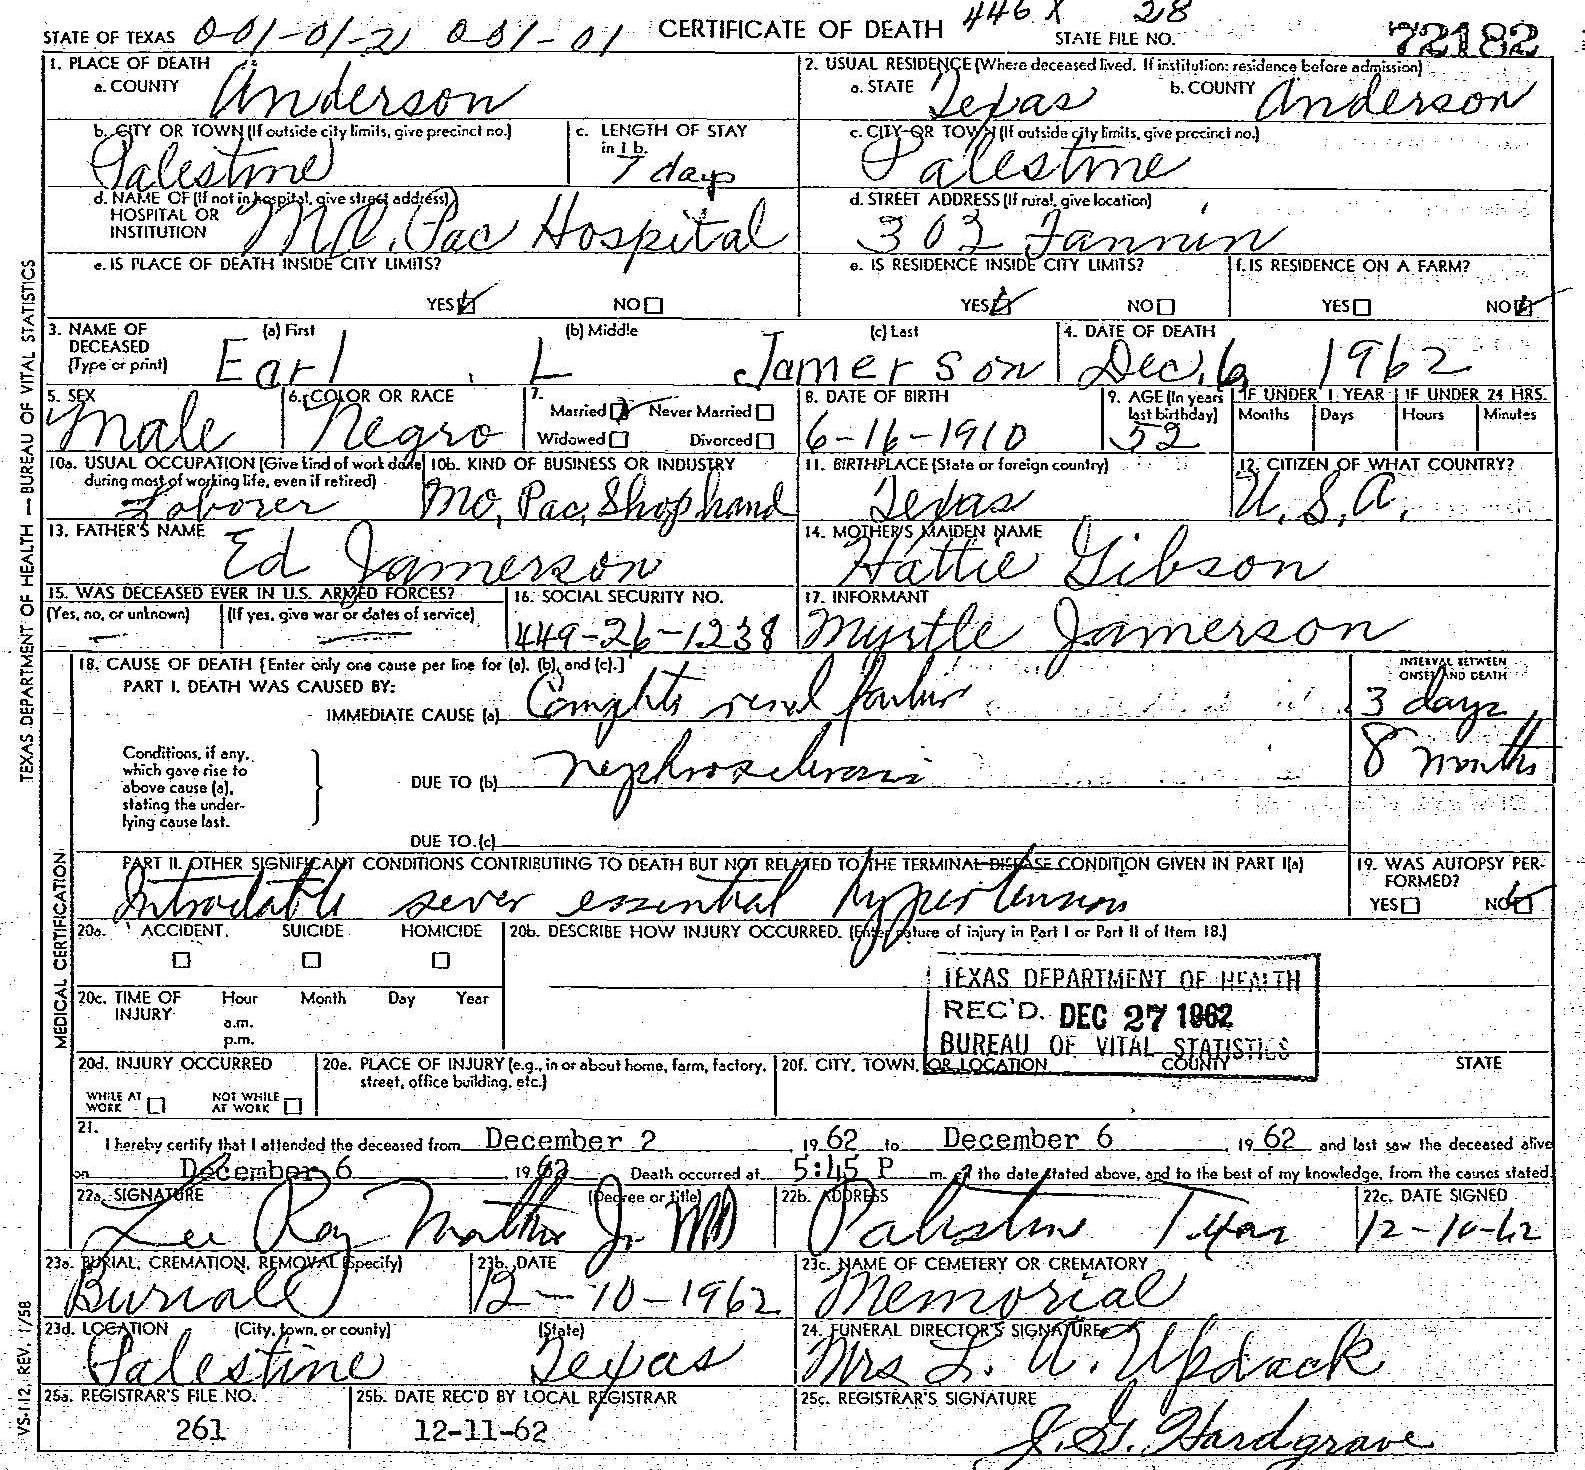 STATE OF TEXAS 001-01-21 001-01 CERTIFICATE OF DEATH 446X 28 STATE FILE NO. 72182
1. PLACE OF DEATH
a. COUNTY Anderson
2. USUAL RESIDENCE (Where deceased lived. If institution: residence before admission)
a. STATE Texas b. COUNTY Anderson
b. CITY OR TOWN (If outside city limits, give precinct no.) Palestine
c. LENGTH OF STAY in 1b. 7 days
c. CITY OR TOWN (If outside city limits, give precinct no.) Palestine
d. NAME OF (If not in hospital, give street address) HOSPITAL OR INSTITUTION Mo. Pac Hospital
d. STREET ADDRESS (If rural, give location) 302 Fannin
e. IS PLACE OF DEATH INSIDE CITY LIMITS?
YES NO
e. IS RESIDENCE INSIDE CITY LIMITS?
YES NO
f. IS RESIDENCE ON A FARM?
YES NO
3. NAME OF DECEASED (Type or print) (a) First (b) Middle (c) Last
Earl L Jamerson
4. DATE OF DEATH Dec. 6 1962
5. SEX Male
6. COLOR OR RACE Negro
7. Married Never Married
Widowed Divorced
8. DATE OF BIRTH 6-16-1910
9. AGE (In years last birthday) 52
IF UNDER 1 YEAR Months Days
IF UNDER 24 HRS. Hours Minutes
10a. USUAL OCCUPATION (Give kind of work done during most of working life, even if retired) Laborer
10b. KIND OF BUSINESS OR INDUSTRY Mo. Pac. Shop hand
11. BIRTHPLACE (State or foreign country) Texas
12. CITIZEN OF WHAT COUNTRY? U.S.A.
13. FATHER'S NAME Ed Jamerson
14. MOTHER'S MAIDEN NAME Hattie Gibson
15. WAS DECEASED EVER IN U.S. ARMED FORCES?
(Yes, no, or unknown) (If yes, give war or dates of service)
16. SOCIAL SECURITY NO. 449-26-1238
17. INFORMANT Myrtle Jamerson
18. CAUSE OF DEATH [Enter only one cause per line for (a), (b), and (c).]
PART I. DEATH WAS CAUSED BY:
IMMEDIATE CAUSE (a) Complete renal failure
INTERVAL BETWEEN ONSET AND DEATH
3 days
Conditions, if any, which gave rise to above cause (a), stating the underlying cause last.
DUE TO (b) nephrosclerosis 8 months
DUE TO (c)
PART II. OTHER SIGNIFICANT CONDITIONS CONTRIBUTING TO DEATH BUT NOT RELATED TO THE TERMINAL DISEASE CONDITION GIVEN IN PART I(a)
Intractable sever essential hypertension
19. WAS AUTOPSY PERFORMED?
YES NO
20a. ACCIDENT SUICIDE HOMICIDE
20b. DESCRIBE HOW INJURY OCCURRED. (Enter nature of injury in Part I or Part II of Item 18.)
20c. TIME OF INJURY Hour Month Day Year
a.m.
p.m.
TEXAS DEPARTMENT OF HEALTH
REC'D. DEC 27 1962
BUREAU OF VITAL STATISTICS
20d. INJURY OCCURRED
WHILE AT WORK NOT WHILE AT WORK
20e. PLACE OF INJURY (e.g., in or about home, farm, factory, street, office building, etc.)
20f. CITY, TOWN, OR LOCATION COUNTY STATE
21. I hereby certify that I attended the deceased from December 2, 1962 to December 6, 1962 and last saw the deceased alive
on December 6, 1962 Death occurred at 5:45 P m. of the date stated above, and to the best of my knowledge, from the causes stated.
22a. SIGNATURE (Degree or title)
Lee Roy Matthews Jr MD
22b. ADDRESS Palestine Texas
22c. DATE SIGNED 12-10-62
23a. BURIAL, CREMATION, REMOVAL (Specify) Buriall
23b. DATE 12-10-1962
23c. NAME OF CEMETERY OR CREMATORY Memorial
23d. LOCATION (City, town, or county) (State)
Palestine Texas
24. FUNERAL DIRECTOR'S SIGNATURE Mrs L. A. Updack
25a. REGISTRAR'S FILE NO. 261
25b. DATE REC'D BY LOCAL REGISTRAR 12-11-62
25c. REGISTRAR'S SIGNATURE J. G. Hardgrave
TEXAS DEPARTMENT OF HEALTH — BUREAU OF VITAL STATISTICS
MEDICAL CERTIFICATION
VS-112, REV. 1/58